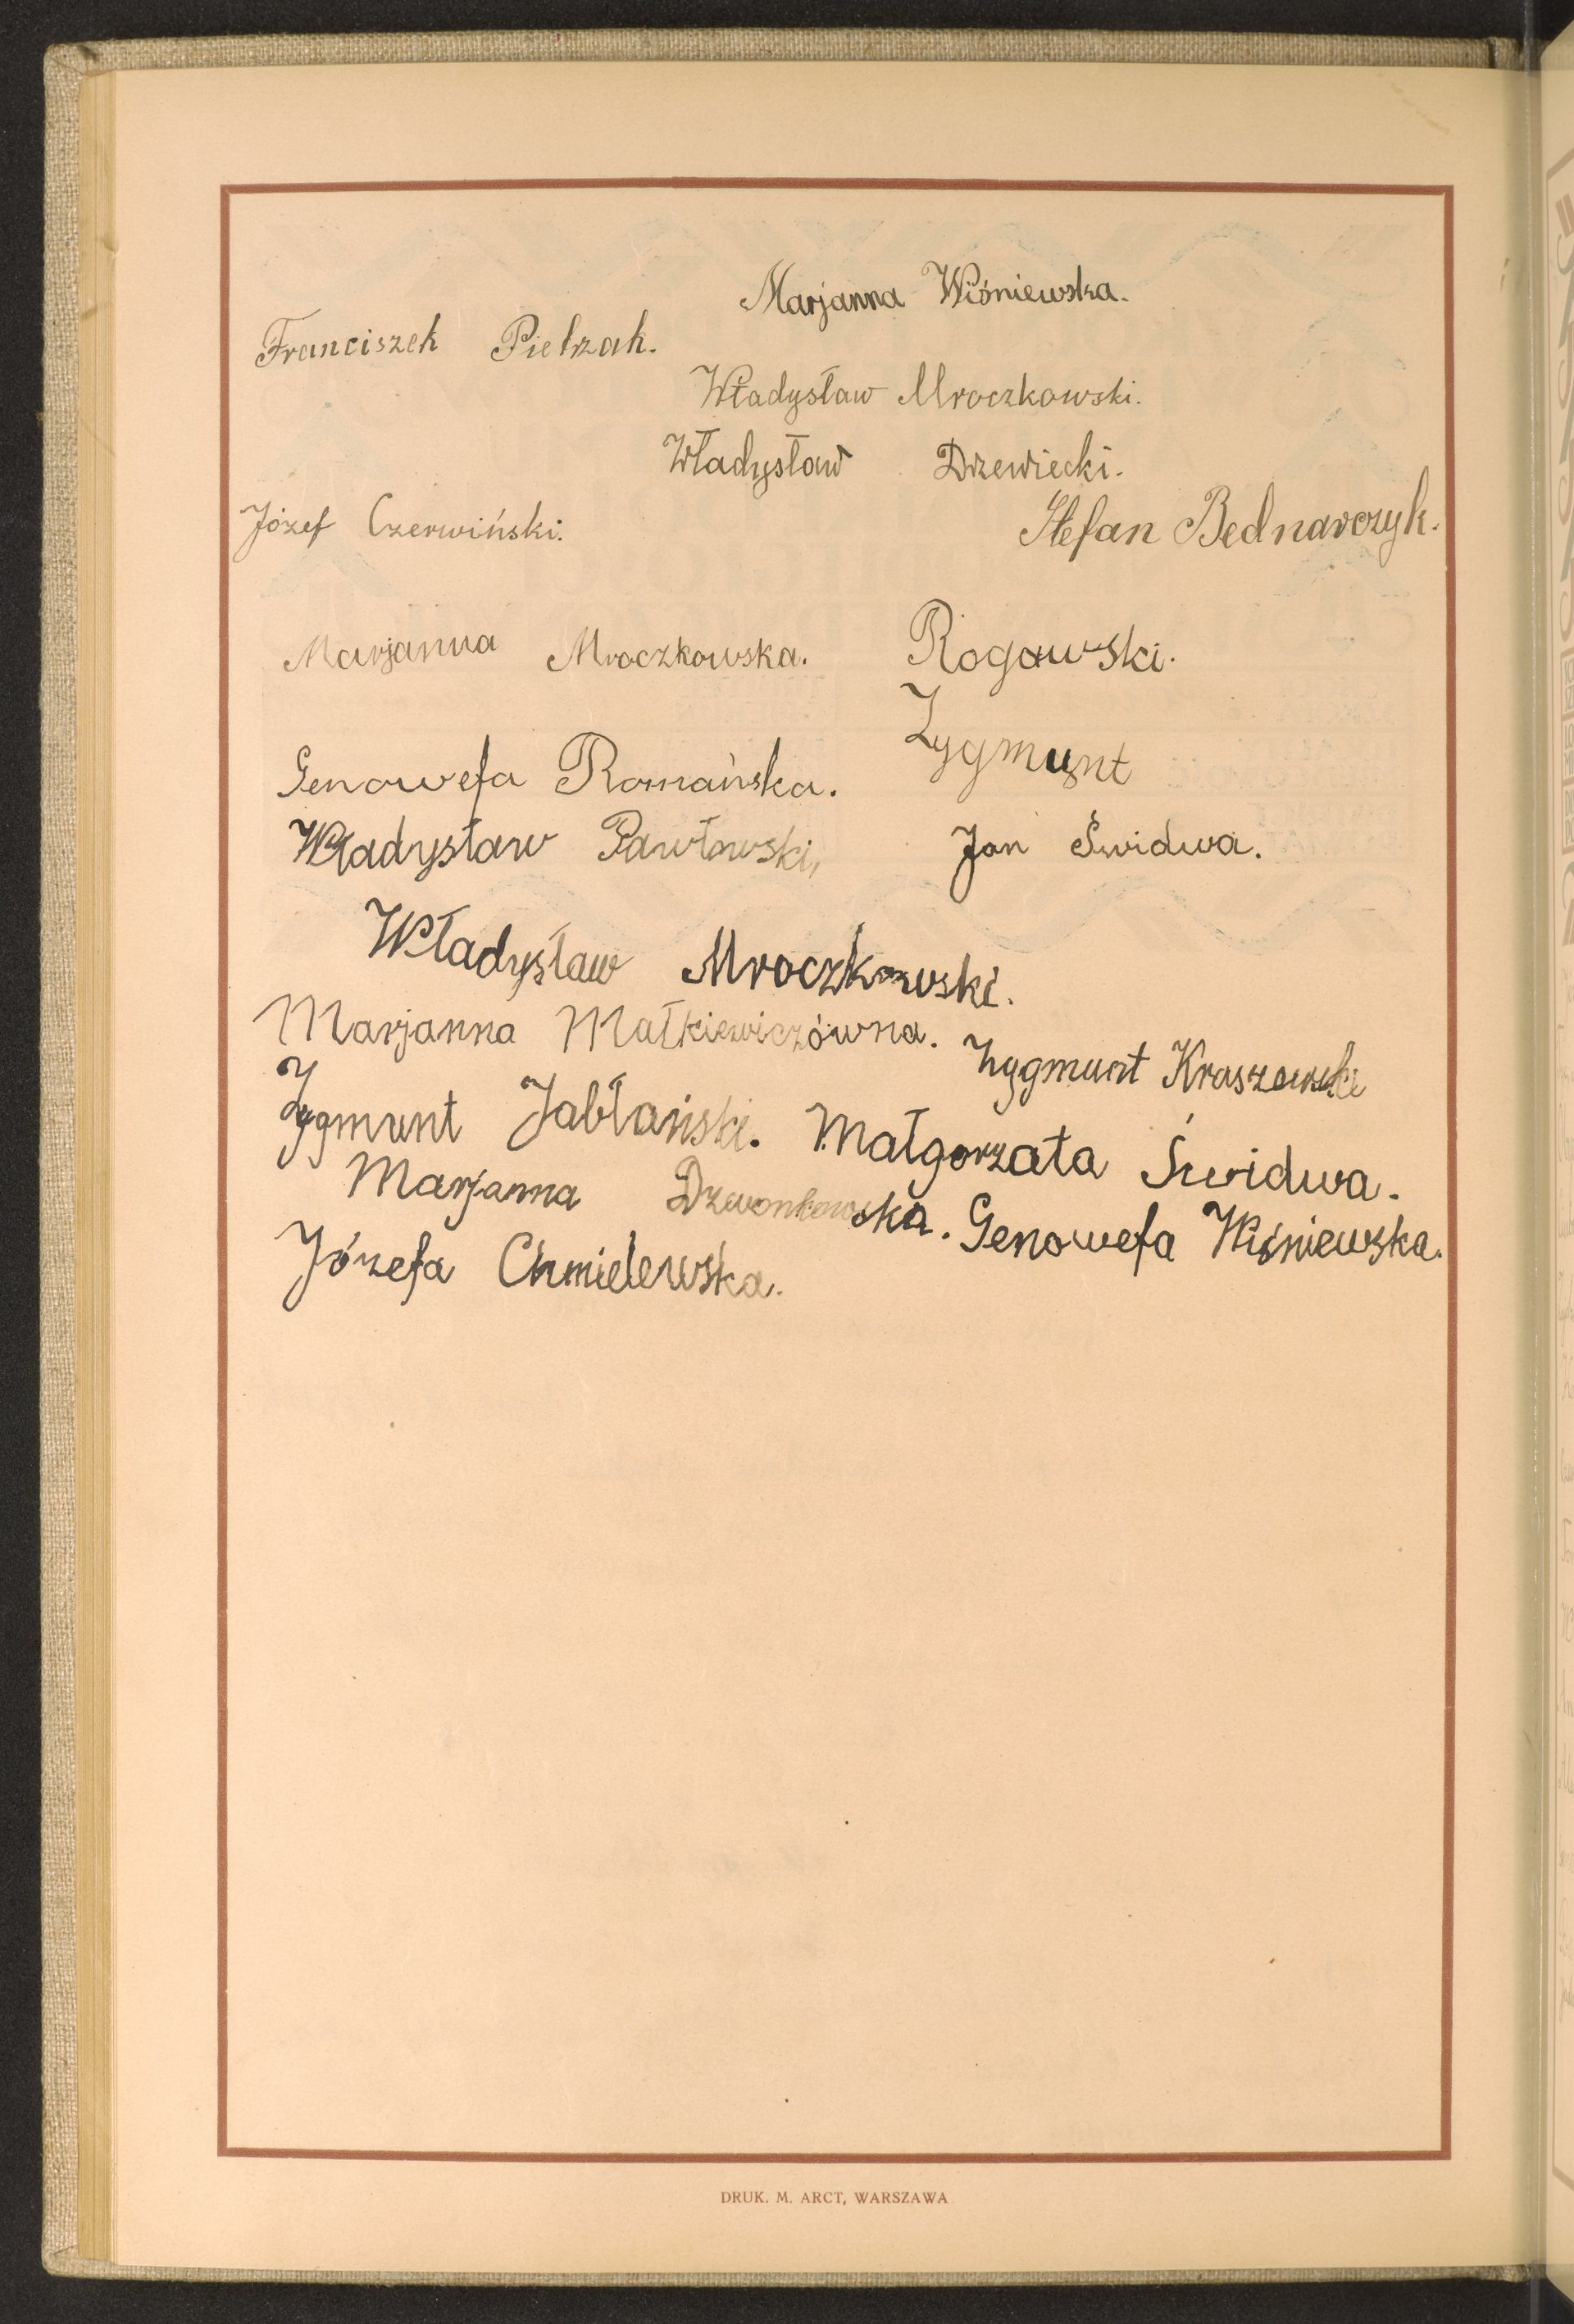 Marjanna Wiśniewska.
Franciszek Pietrzak.
Władysław Mroczkowski.
Władysław Drzewiecki.
Józef Czerwiński.
Stefan Bednarczyk.
Marjanna Mroczkowska.
Rogowski.
Zygmunt
Genowefa Romańska.
Władysław Pawłowski,
Jan Świdwa.
Władysław Mroczkowski.
Marjanna Małkiewiczówna.
Zygmunt Kraszewski
Zygmunt Jabłański.
Małgorzata Świdwa.
Marjanna Dzwonkowska.
Genowefa Wiśniewska.
Józefa Chmielewska.
DRUK. M. ARCT, WARSZAWA